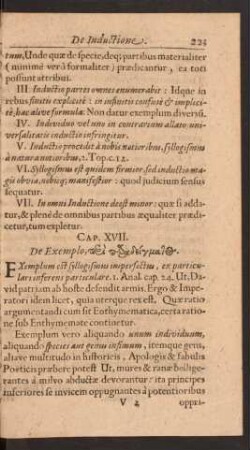 De Inductione. 223
tum, Unde quæ de specie, deq; partibus materialiter
(minimè verò formaliter) prædicantur, ea toti
possunt attribui.
III. Inductio partes omnes enumerabit: Idque in
rebus finitis explicitè: in infinitis confusè & implici-
tè, hac aliave formulâ: Non datur exemplum diversi.
IV. Individuo vel uno in contrarium allato uni-
versalitatis inductio infringitur.
V. Inductio procedit à nobis notioribus, syllogismus
à natura notioribus. 1. Top. c. 12.
VI. Syllogismus est quidem firmior, sed inductio ma-
gis obvia, nobisq; manifestior: quod judicium sensus
sequatur.
VII. In omni Inductione deest minor: quæ si adda-
tur, & plenè de omnibus partibus æqualiter prædi-
cetur, tum expletur.
CAP. XVII.
De Exemplo,
EXemplum est syllogismus imperfectus, ex particu-
lari inferens particulare. 1. Anal. cap. 24. Ut, Da-
vid patriam ab hoste defendit armis. Ergo & Impe-
ratori idem licet, quia uterque rex est. Quæ ratio
argumentandi cum sit Enthymematica, certa ratio-
ne sub Enthymemate continetur.
Exemplum vero aliquando unum individuum,
aliquando species aut genus infimum, itemque gens,
aliave multitudo in historicis, Apologis & fabulis
Poëticis præbere potest Ut, mures & ranæ bellige-
rantes à milvo abductæ devorantur: ita principes
inferiores se invicem oppugnantes à potentioribus
V 4 oppri-